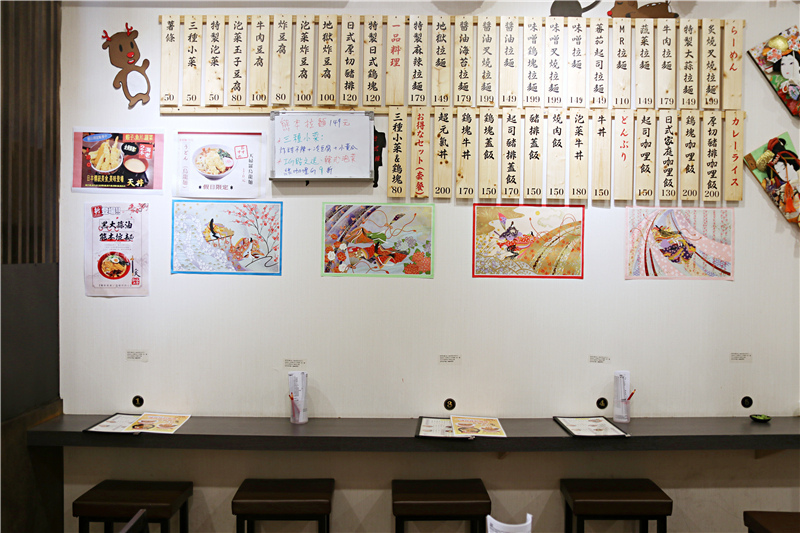 らーめん
炙燒叉燒拉麵 199
特製大蒜拉麵 179
牛肉拉麵 179
蔬菜拉麵 149
MR拉麵 110
蕃茄起司拉麵 180
味噌拉麵 149
味噌叉燒拉麵 199
味噌鶏塊拉麵 199
醬油拉麵 149
醬油叉燒拉麵 199
醬油海苔拉麵 179
地獄拉麵 149
特製麻辣拉麵 179
一品料理
特製日式鶏塊 120
日式厚切豬排 120
地獄炸豆腐 100
泡菜炸豆腐 100
炸豆腐
牛肉豆腐 100
泡菜玉子豆腐 80
特製泡菜 50
三種小菜 50
薯條 50
カレーライス
厚切豬排咖哩飯 200
鶏塊咖哩飯 200
日式家庭咖哩飯 130
起司咖哩飯 160
どんぶり
牛丼 150
泡菜牛丼 180
燒肉飯 150
豬排蓋飯 150
起司豬排蓋飯 170
鶏塊蓋飯 150
鶏塊牛丼 170
超元氣丼 200
お得なセット(套餐)
三種小菜&鶏塊 80
熊本拉麵 149元
三種小菜:
天丼
假日限定
黑大蒜油
熊本拉麵
1
3
4
5